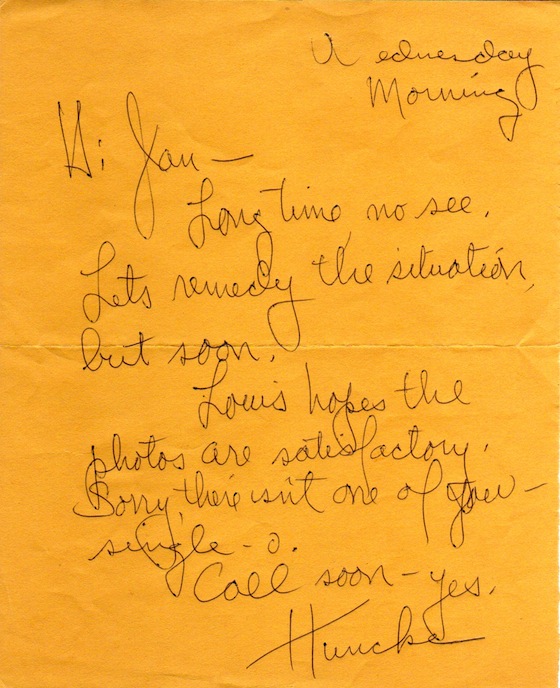 Wednesday
Morning
Hi Jan —
Long time, no see.
Lets remedy the situation,
but soon.
Louis hopes the
photos are satisfactory.
Sorry, there isn't one of you —
single - o.
Call soon — yes.
Huncke